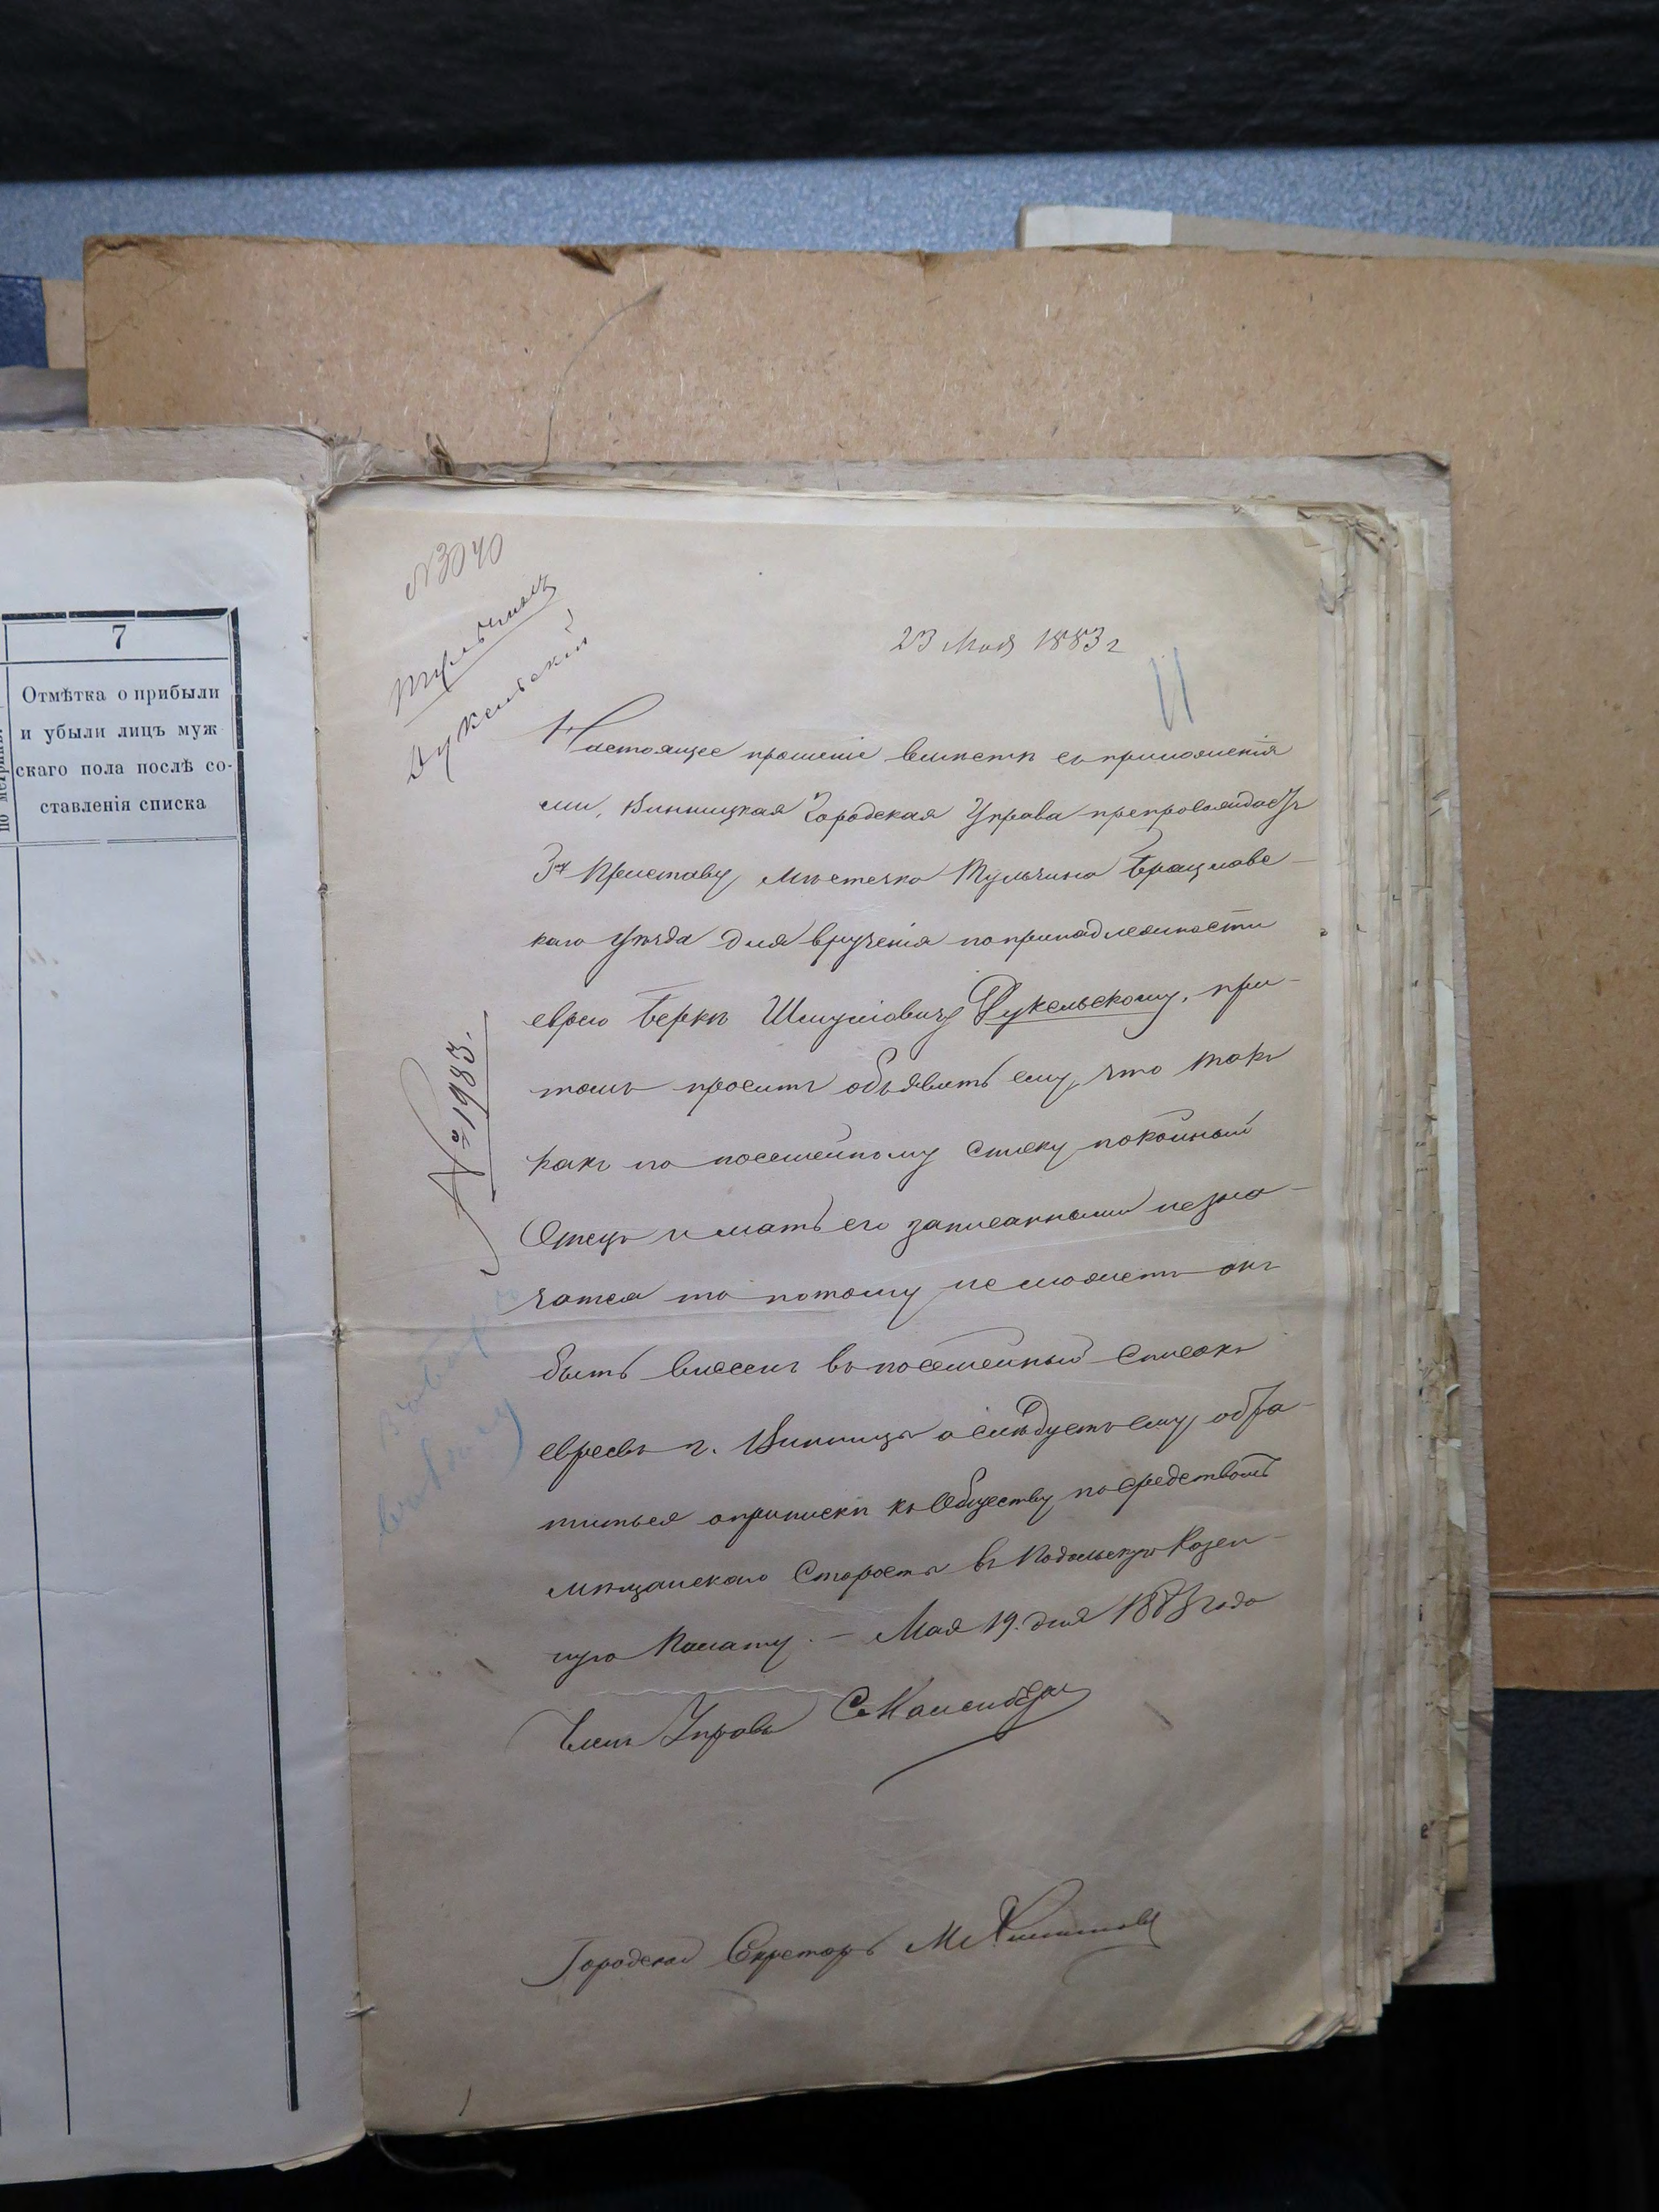 7
Отмѣтка о прибыли
и убыли лицъ муж
скаго пола послѣ со-
ставленія списка
№ 3040
Тульчинъ
Дукельскій
23 Мая 1883 г
11
Настоящее прошеніе вмѣстѣ съ приложенія
ми, Винницкая Городская Управа препровождаетъ
Гну Приставу Мѣстечка Тульчина Брацлавс-
каго Уѣзда для врученія по принадлежности
еврею Беркѣ Шмулiовичу Дукельскому, при-
томъ проситъ объявить ему, что такъ
какъ по посемейному списку покойный
Отецъ и мать его записанными незна-
чатся то потому не можетъ онъ
быть внесенъ въ посемейный списокъ
евреевъ г. Винницы а слѣдуетъ ему обра-
титься о припискѣ къ Обществу посредствомъ
мѣщанскаго Старосты въ Подольскую Казен-
ную Палату. - Мая 19. дня 1883 года
№ 1983.
Членъ Управы
Городской Секретарь